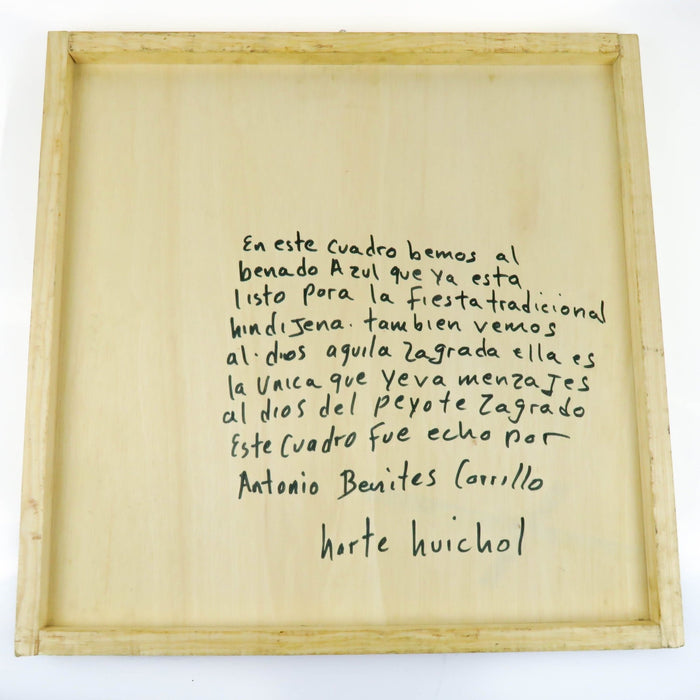 En este cuadro bemos al
benado Azul que ya esta
listo pora la fiesta tradicional
hindijena. tambien vemos
al. dios aguila zagrada ella es
la unica que yeva menzajes
al dios del peyote zagrado
Este cuadro fue echo por
Antonio Benites Carrillo
harte huichol